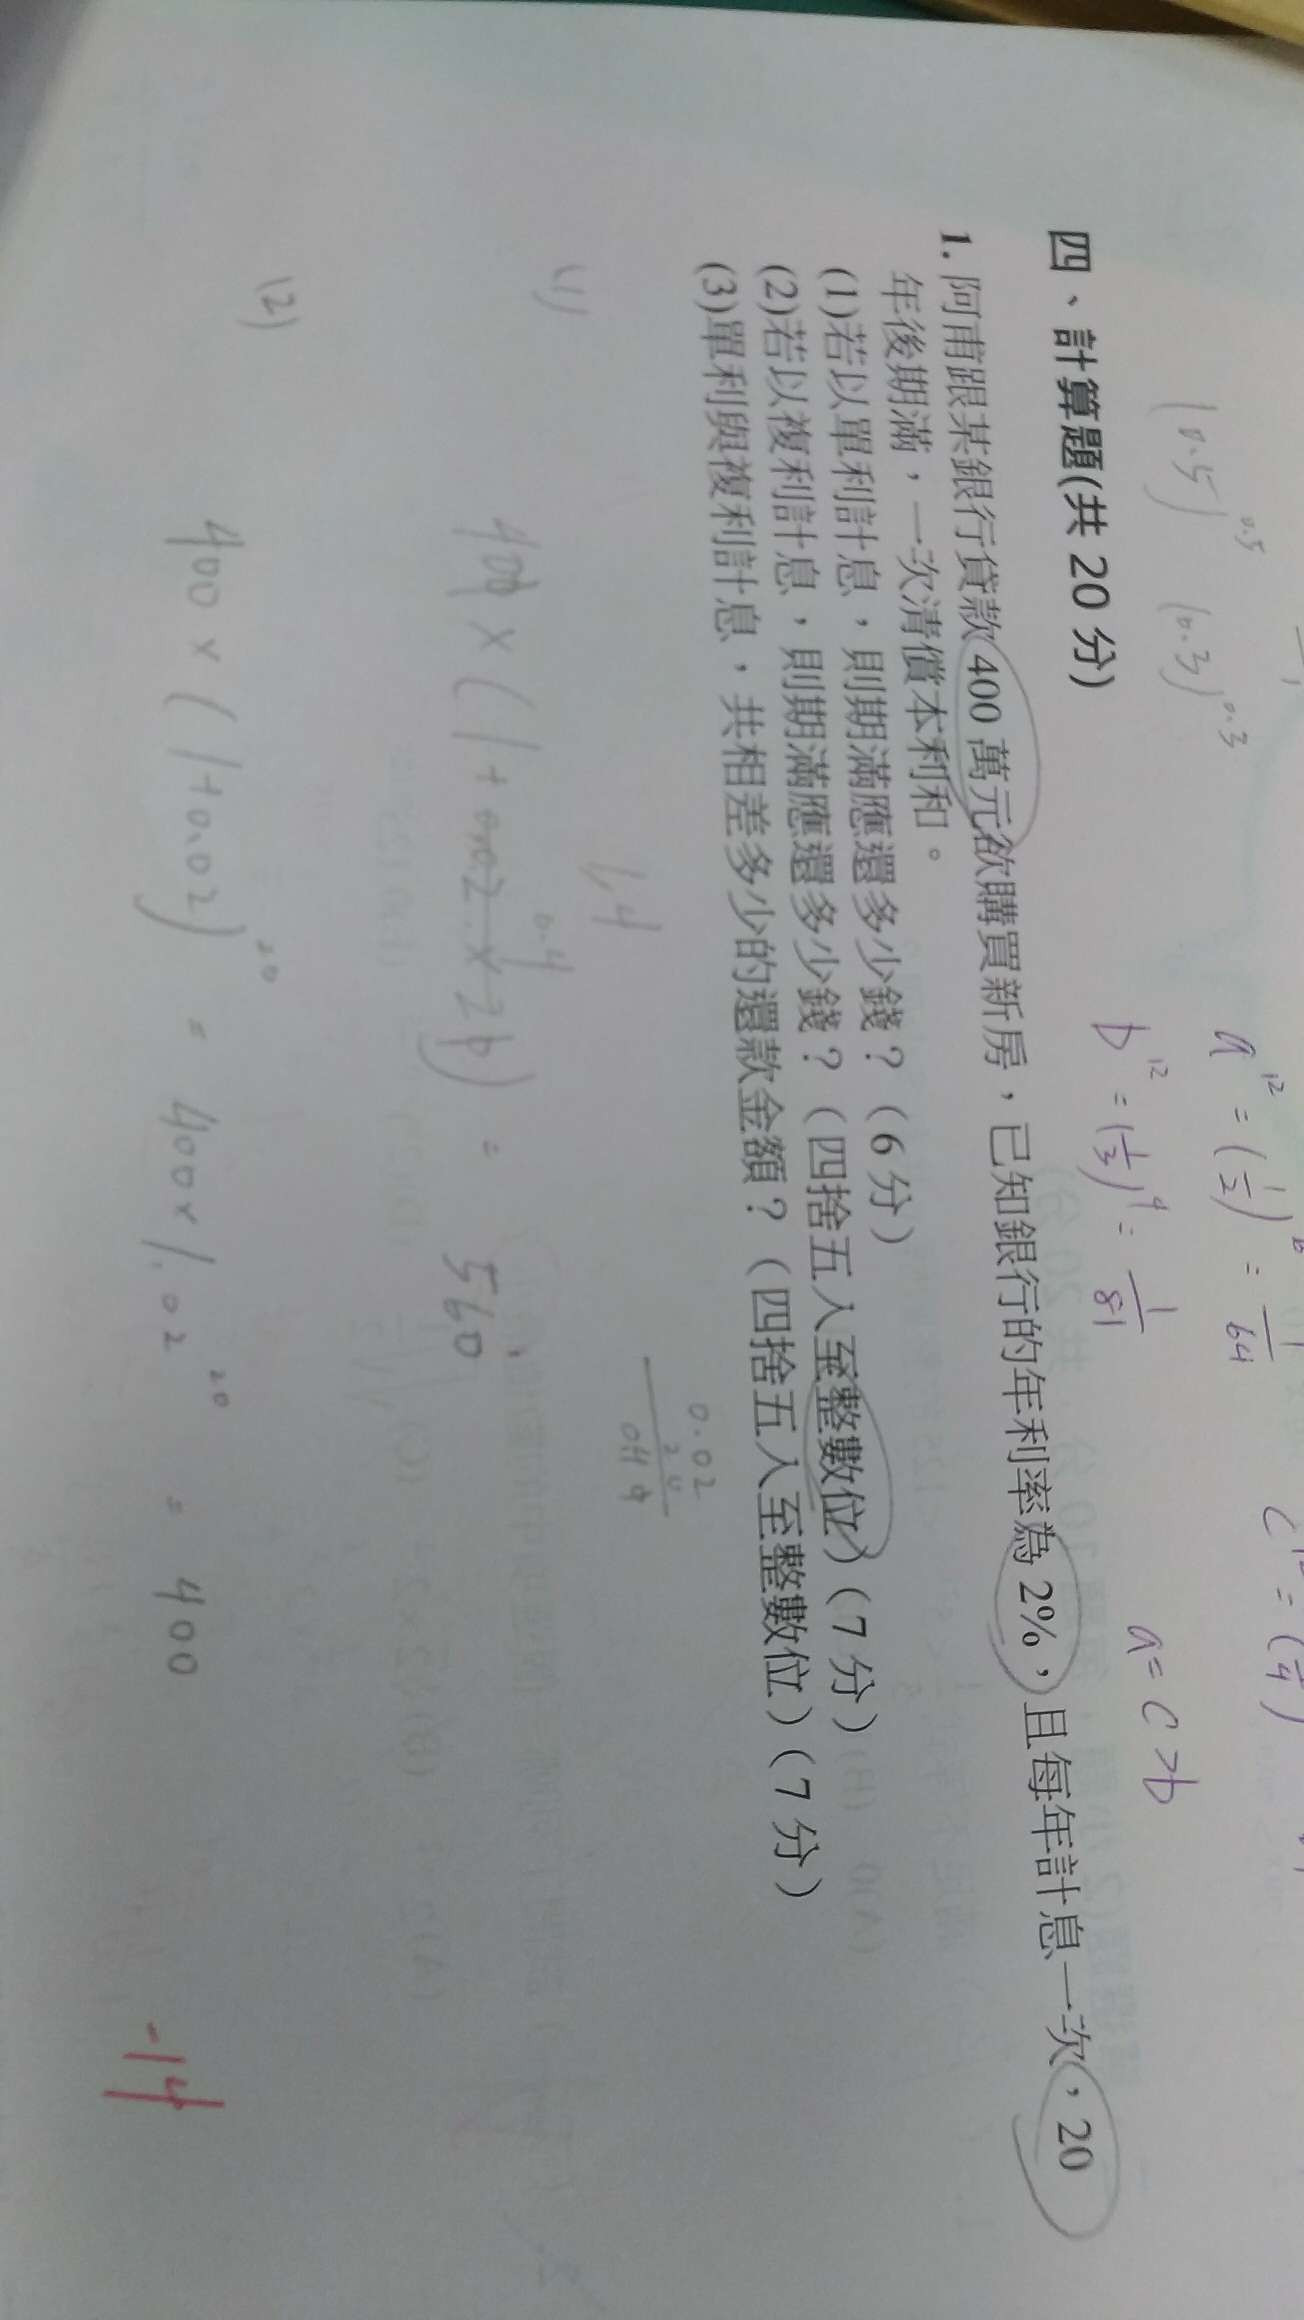 a¹² = (1/2)⁶ = 1/64
b¹² = (1/3)⁴ = 1/81
a = c > b
(0.5)^0.5 (0.3)^0.3
四、計算題(共 20 分)
1. 阿甫跟某銀行貸款 400 萬元欲購買新房，已知銀行的年利率為 2%，且每年計息一次，20
年後期滿，一次清償本利和。
(1)若以單利計息，則期滿應還多少錢？（6 分）
(2)若以複利計息，則期滿應還多少錢？（四捨五入至整數位）（7 分）
(3)單利與複利計息，共相差多少的還款金額？（四捨五入至整數位）（7 分）
0.02
1.4
(1)
400 × (1 + 0.02 × 20) = 560
0.4
(2)
400 × (1+0.02)²⁰ = 400 × 1.02²⁰ = 400
-14